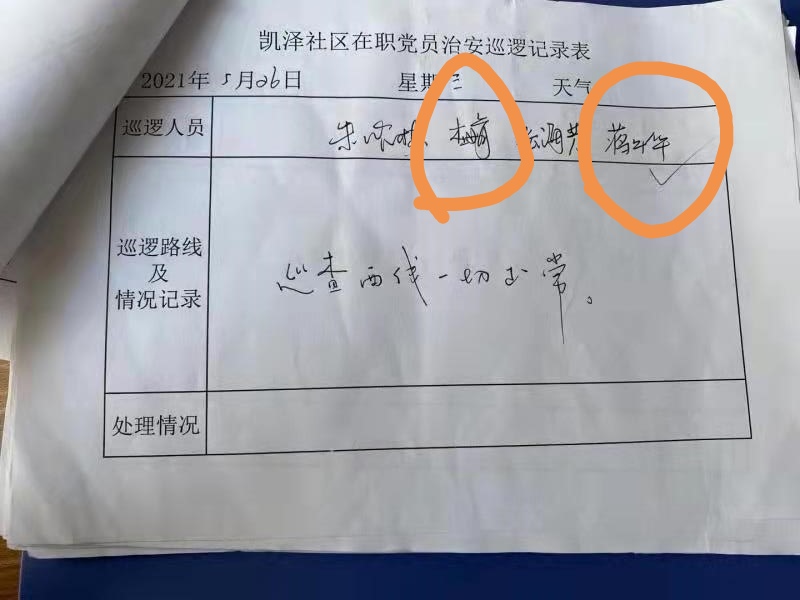 凯泽社区在职党员治安巡逻记录表
2021年 5月26日 星期三 天气
巡逻人员 朱
巡逻路线
及
情况记录
巡查西线一切正常。
处理情况